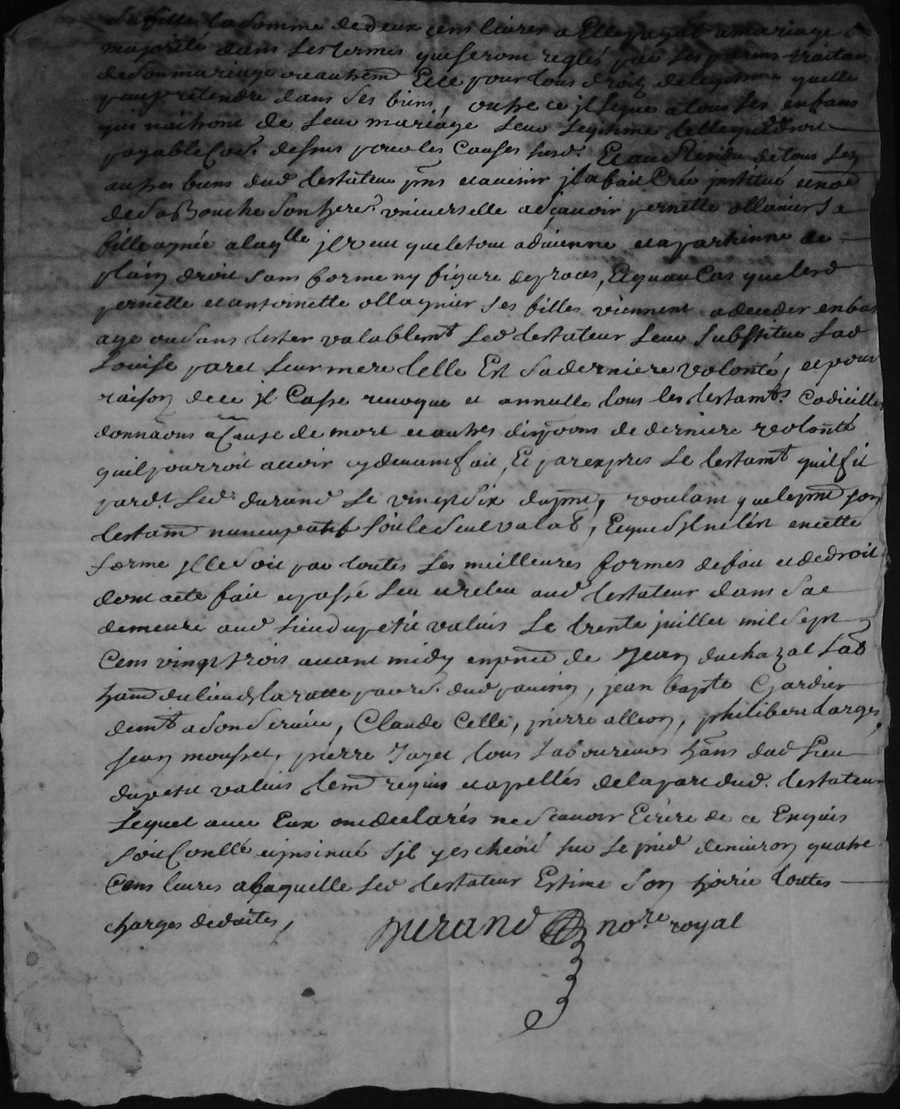 sa fille la somme de deux cens livres a Elle payable a mariage
majorité dans les termes qui seront reglés par ses parens traitan
de son mariage ou autremt Et ce pour tous droitz de legitime quelle
peut pretendre dans ses biens, outre ce il legue a tous les enfans
qui naitront de leur mariage leur legitime telle que de droit
payable Com. dessus pour les causes susd. Et au Residu de tous ses
autres biens dud testateur pnts et avenir il a fait Créé institué et nommé
de sa Bouche son here. universelle a sçavoir pernette ollanier sa
fille aynée a laqlle il veut que le tout advienne et apartienne de
plain droit sans forme ny figure de proces, Et qu au Cas que lesd
pernette et antoinette ollagnier ses filles viennent a deceder en bas
age ou sans tester valablemt led testateur leur substitue lad
Louise paret leur mere telle Est sa derniere volonté, et pour
raison de ce il Casse revoque et annulle tous les testamts. Codicilles
donnãons a Cause de mort et autres dispoons de derniere volonté
quil pourroit avoir cy devant fait, Et par expres le testamt quil fit
pardt. led. durand le vingt six du pnt, voulant que le pnt son
testamt nuncupatif soit le seul valab, Et que sil nest en cette
forme il le soit par toutes les meilleures formes de fait et de droit
dont acte fait et passé leu et releu aud testateur dans sae
demeure aud lieu du petit valuis le trente juillet mil sept
Cens vingt trois avant midy en pnce de Jean duchazal lab
hant du lieu de laratte parr. dud, jean bapte Gardier
demt a son service, Claude Celle, pierre alleon, philibert larges
Jean mousset, pierre Jayet tous laboureurs hans dud lieu
du petit valuis tem requis et apellés de la part dud. testateur
Lequel avec Eux ont declarés ne scavoir Ecrire de ce Enquis
soit Conllé et insinué sil y eschoit sur le pied denviron quatre
Cens livres a laquelle led testateur Estime son hoirie toutes
charges deduites,
Durand nore royal